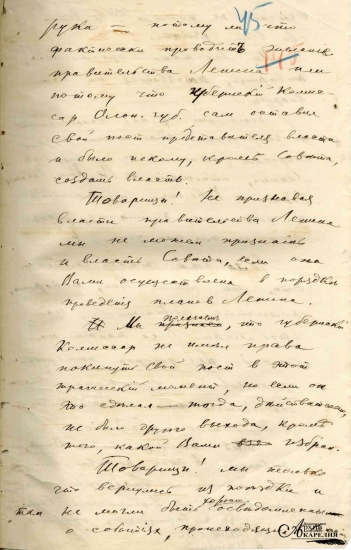 45
рука — потому ли что
фактически проводитъ
правительства Ленина или
потому что Губернскій Комис-
сар Олон. губ. сам оставил
свой пост представителя власти
и было некому, кромѣ Совѣта,
создать власть.
Товарищи! Не признавая
власти правительства Ленина
мы не можем признать
и власть Совѣта, если она
Вами осуществлена в порядкѣ
проведенія планов Ленина.
Мы полагаем, что губернскій
Комиссар не имѣл права
покинуть свой пост в этот
трагическій момент, но если он
это сдѣлал — тогда, дѣйствительно,
не было другого выхода, кромѣ
того, какой Вами избран.
Товарищи! Мы только
что вернулись из поѣздки и
там не могли быть хорошо освѣдомлены
о событіях, происходящих
АРХИВ
КАРЕЛИЯ